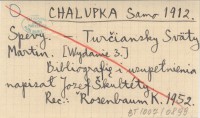 CHALUPKA Samo 1912.
Spevy. Turčiansky Svätý
Martin. [Wydanie 3.]
Bibliografię i uzupełnienia
napisał Jozef Škultéty.
Rec.: Rosenbaum K. 1952.